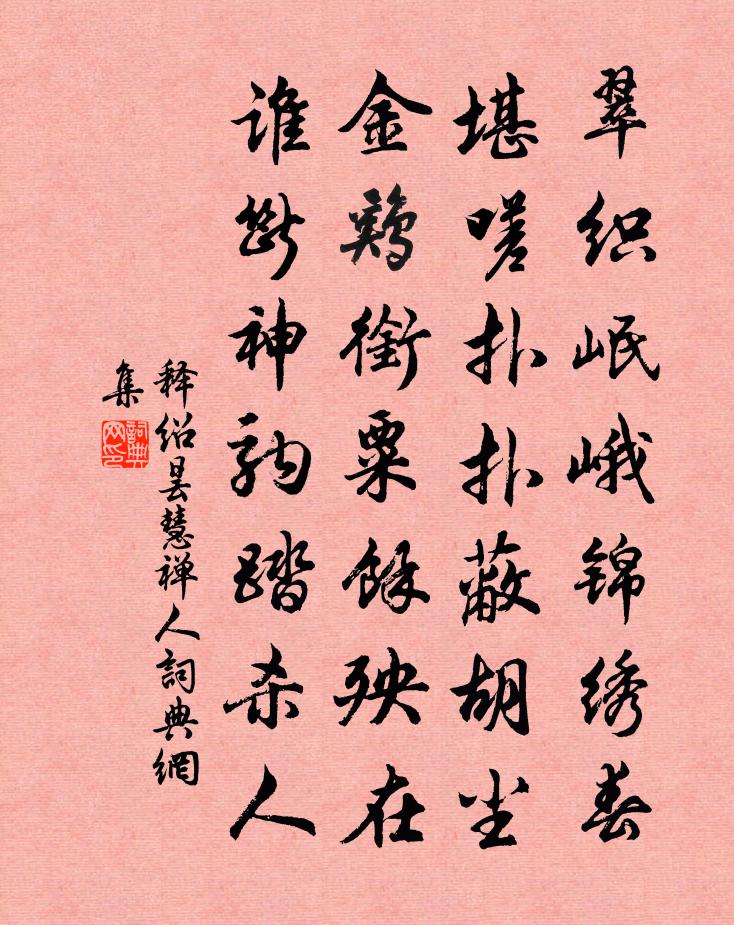 翠织岷峨锦绣春
堪嗟扑扑蔽胡尘
金鷄銜粟馀殃在
谁断神驹踏杀人
释绍昙慧禅人詞典網
集
詞典网印